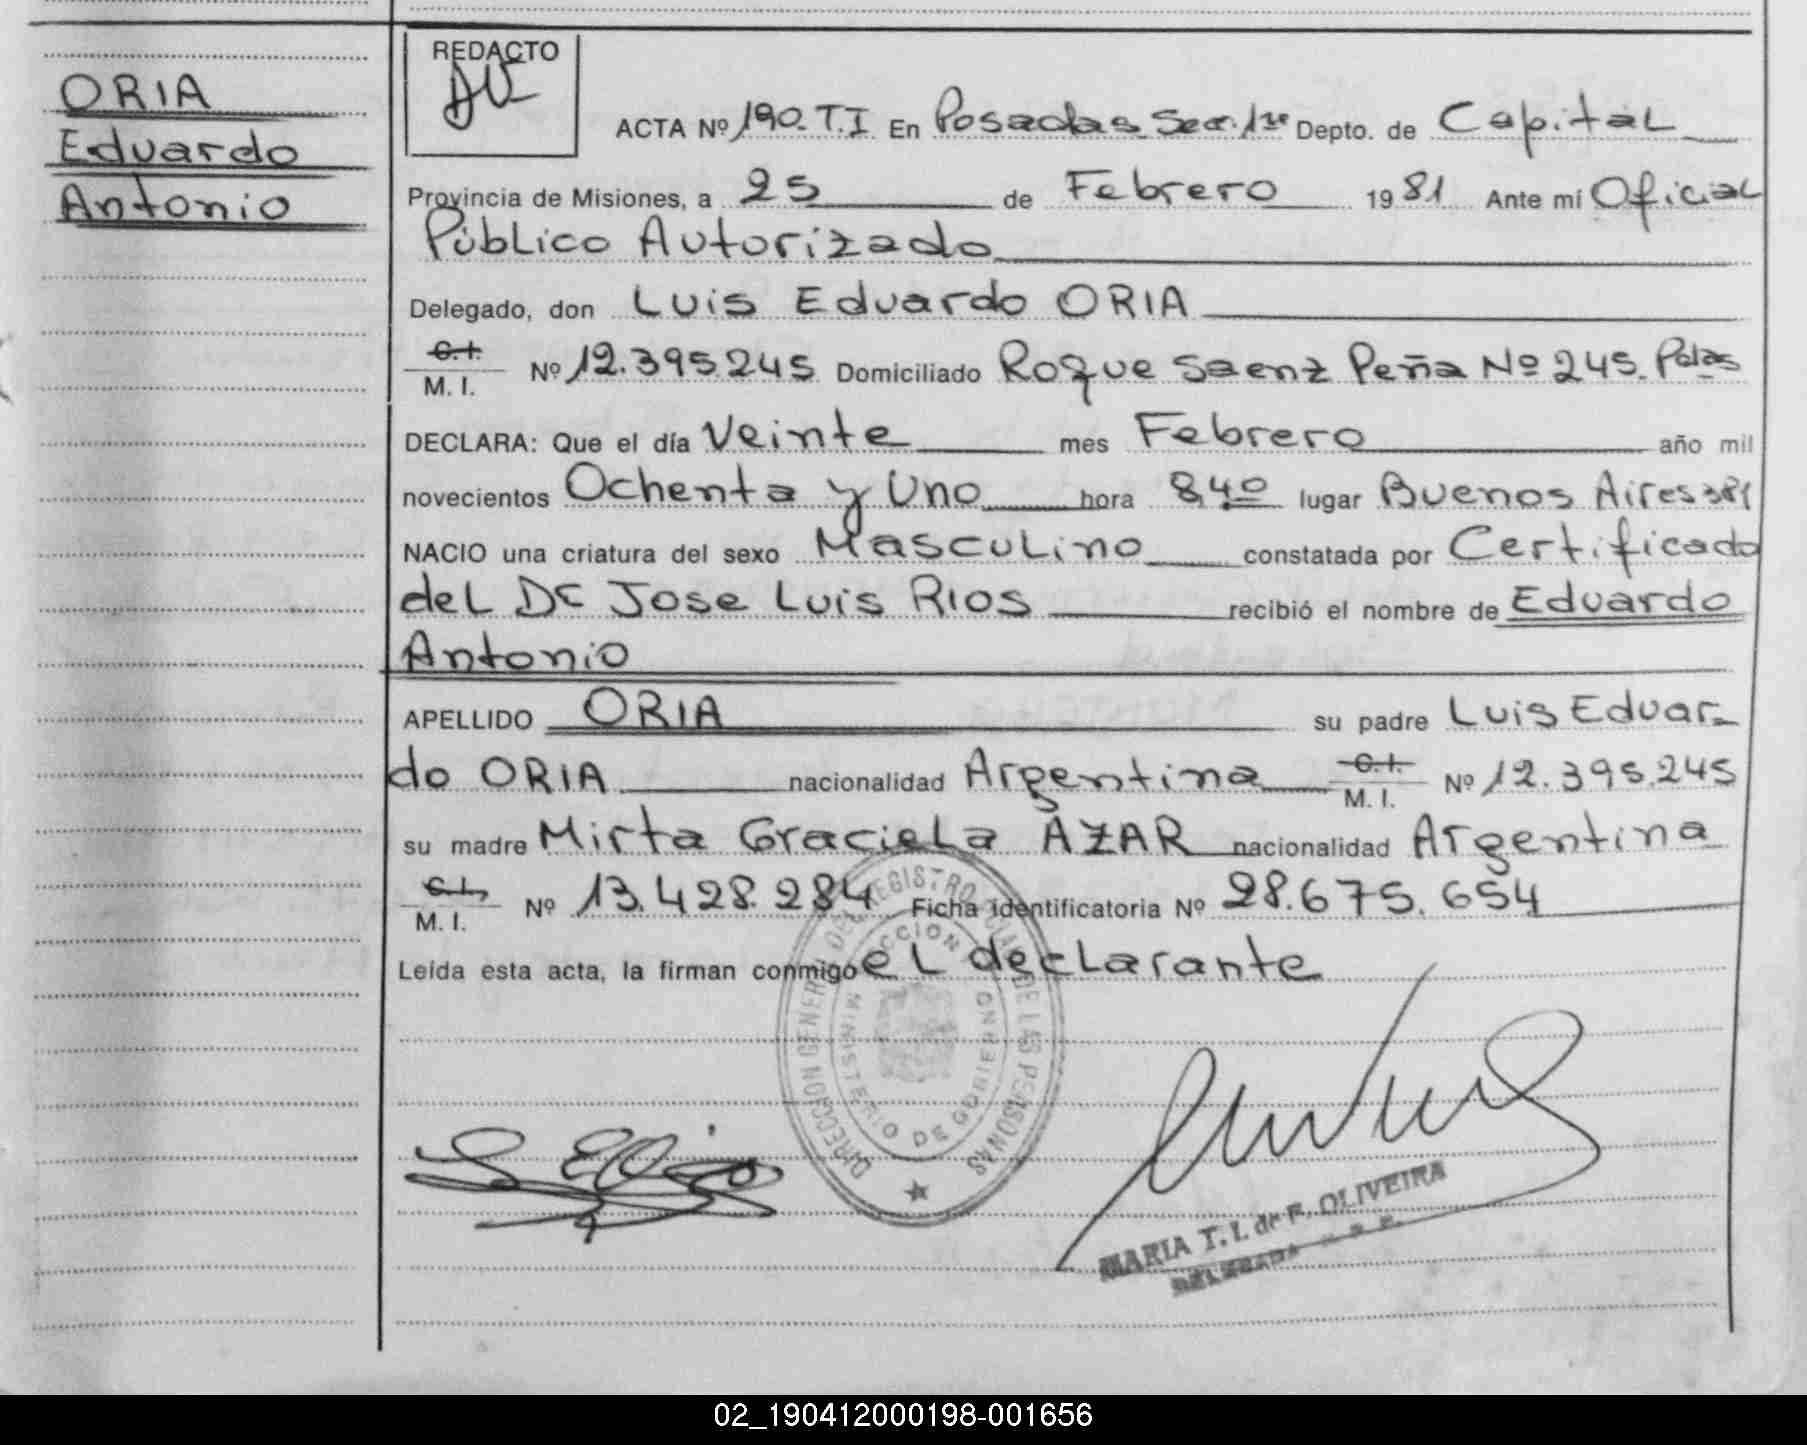 ORIA
Eduardo
Antonio
REDACTO
ACTA Nº 190. T.I En Posadas Secc. 1ra Depto. de Capital
Provincia de Misiones, a 25 de Febrero 1981 Ante mí Oficial
Público Autorizado
Delegado, don Luis Eduardo ORIA
C.I. M. I. Nº 12.395.245 Domiciliado Roque Saenz Peña Nº 245. Pdas
DECLARA: Que el día Veinte mes Febrero año mil
novecientos Ochenta y Uno hora 8,40 lugar Buenos Aires
NACIO una criatura del sexo Masculino constatada por Certificado
del Dr Jose Luis Rios recibió el nombre de Eduardo
Antonio
APELLIDO ORIA su padre Luis Eduar-
do ORIA nacionalidad Argentina C.I. M. I. Nº 12.395.245
su madre Mirta Graciela AZAR nacionalidad Argentina
C.I. M. I. Nº 13.428.284 Ficha identificatoria Nº 28.675.654
Leída esta acta, la firman conmigo el declarante
DIRECCION GENERAL DEL REGISTRO DE LAS PERSONAS
MINISTERIO DE GOBIERNO
MARIA T. I. de F. OLIVEIRA
DELEGADA
02_190412000198-001656